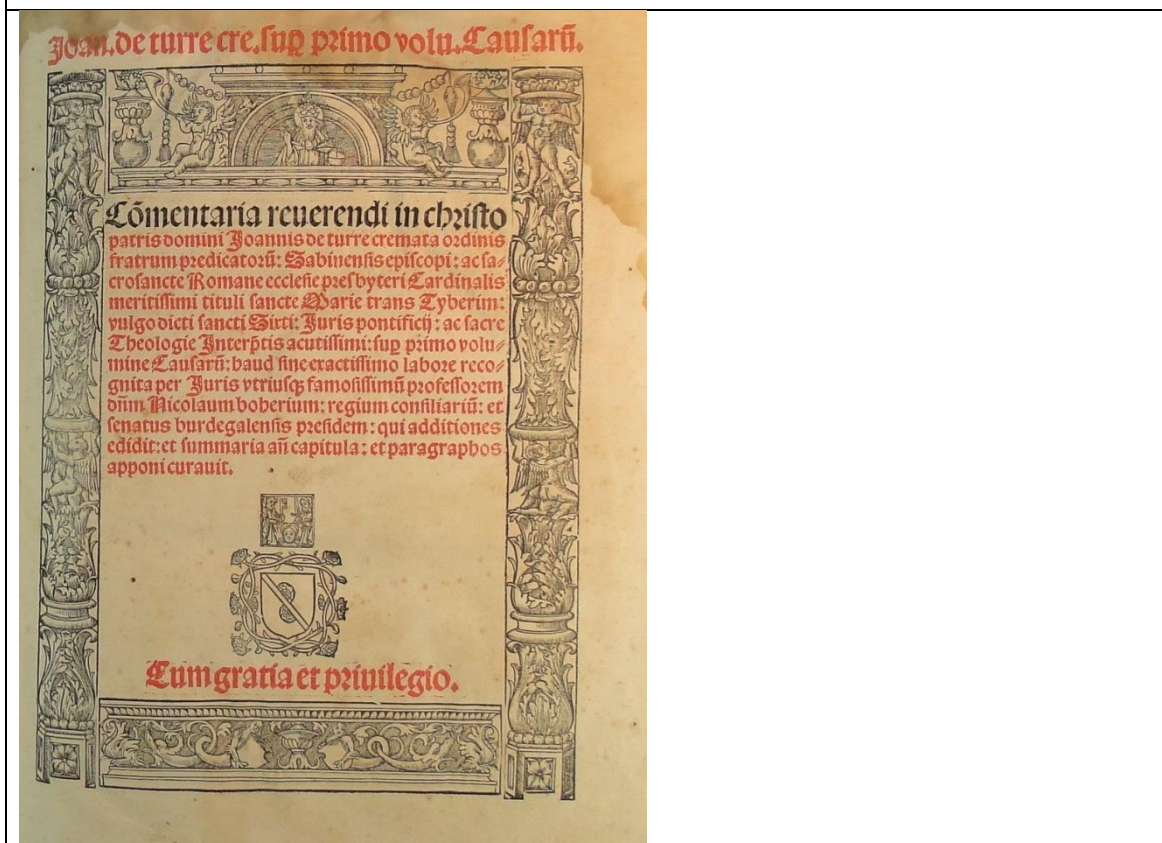 Joan. de turre cre. suꝑ primo volu. Causarū.
Cōmentaria reuerendi in christo
patris domini Joannis de turre cremata ordinis
fratrum predicatorū: Sabinensis episcopi: ac sa⸗
crosancte Romane ecclesie presbyteri Cardinalis
meritissimi tituli sancte Marie trans Tyberim:
vulgo dicti sancti Sixti: Juris pontificij: ac sacre
Theologie Interp̄tis acutissimi: suꝑ primo volu⸗
mine Causarū: haud sine exactissimo labore reco⸗
gnita per Juris vtriusqꝫ famosissimū professorem
dn̄m Nicolaum boherium: regium consiliariū: et
senatus burdegalensis presidem: qui additiones
edidit: et summaria an̄ capitula: et paragraphos
apponi curauit.
Cum gratia et priuilegio.